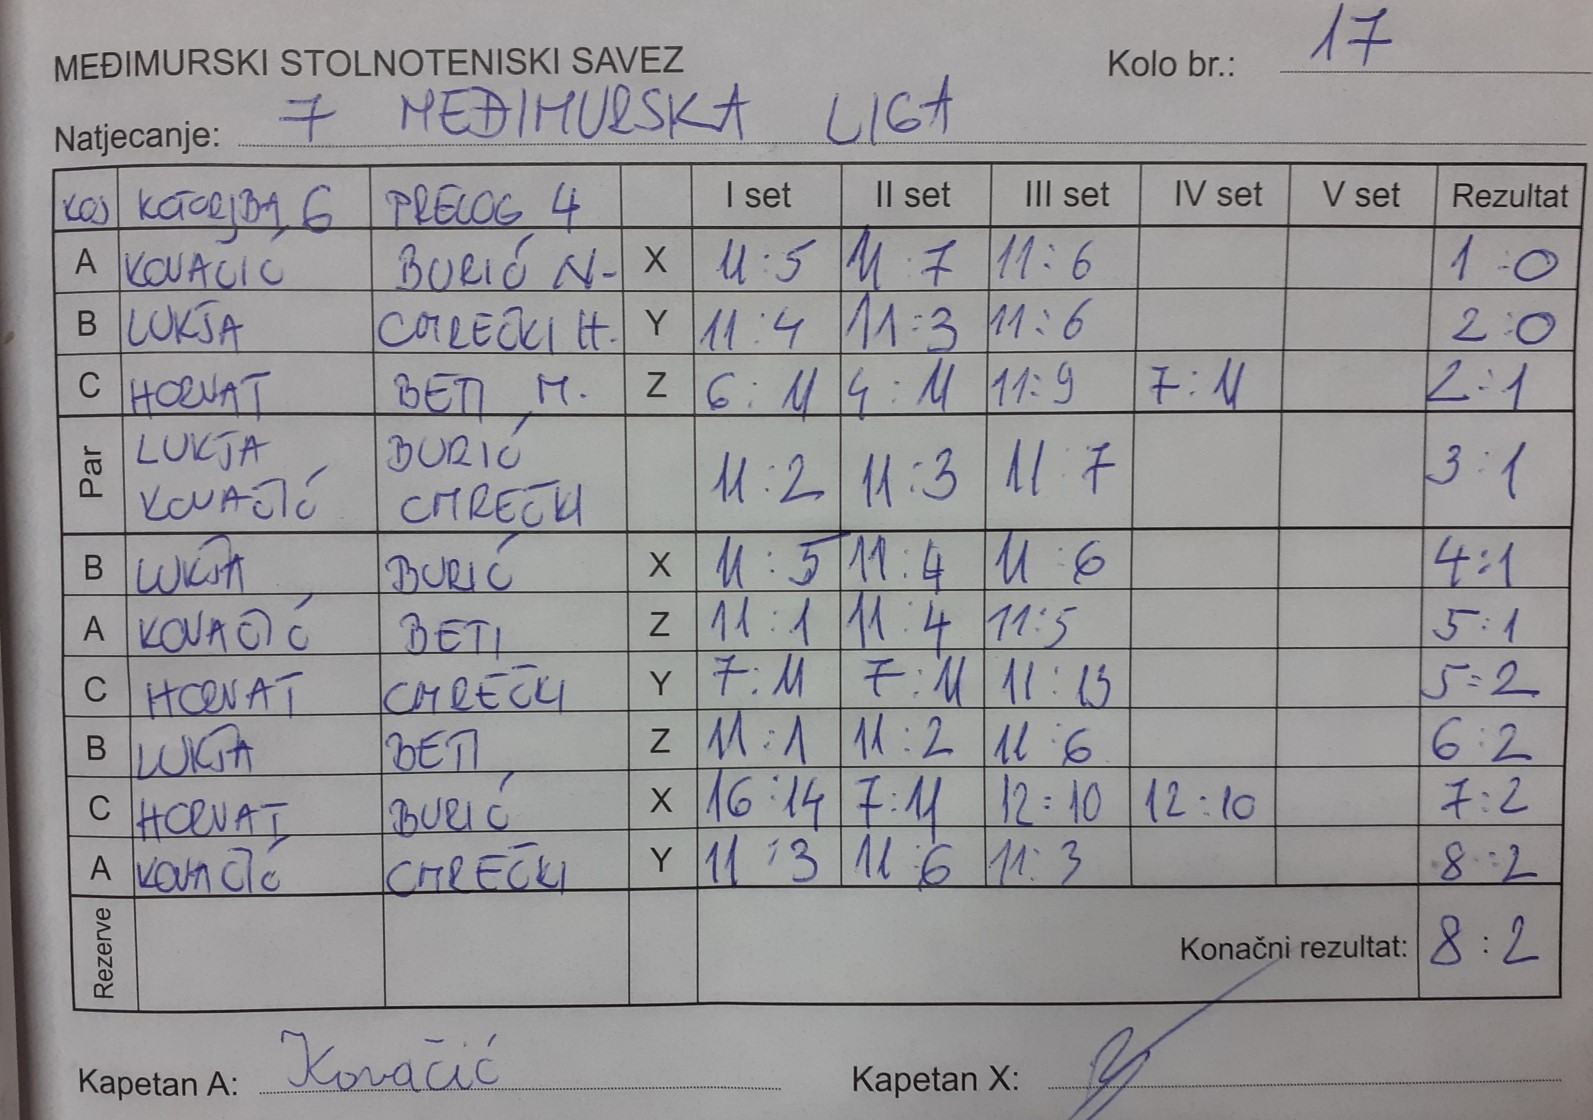 MEĐIMURSKI STOLNOTENISKI SAVEZ Kolo br.: 17
Natjecanje: 7 MEĐIMURSKA LIGA
KOTORIBA 6 PRELOG 4 I set II set III set IV set V set Rezultat
A KOVAČIĆ BURIĆ N. X 11:5 11:7 11:6 1:0
B LUKŠA CMREČKI H. Y 11:4 11:3 11:6 2:0
C HORVAT BETI M. Z 6:11 4:11 11:9 7:11 2:1
Par LUKŠA BURIĆ 11:2 11:3 11:7 3:1
KOVAČIĆ CMREČKI
B LUKŠA BURIĆ X 11:5 11:4 11:6 4:1
A KOVAČIĆ BETI Z 11:1 11:4 11:5 5:1
C HORVAT CMREČKI Y 7:11 7:11 11:13 5:2
B LUKŠA BETI Z 11:1 11:2 11:6 6:2
C HORVAT BURIĆ X 16:14 7:11 12:10 12:10 7:2
A KOVAČIĆ CMREČKI Y 11:3 11:6 11:3 8:2
Rezerve Konačni rezultat: 8:2
Kapetan A: Kovačić Kapetan X: